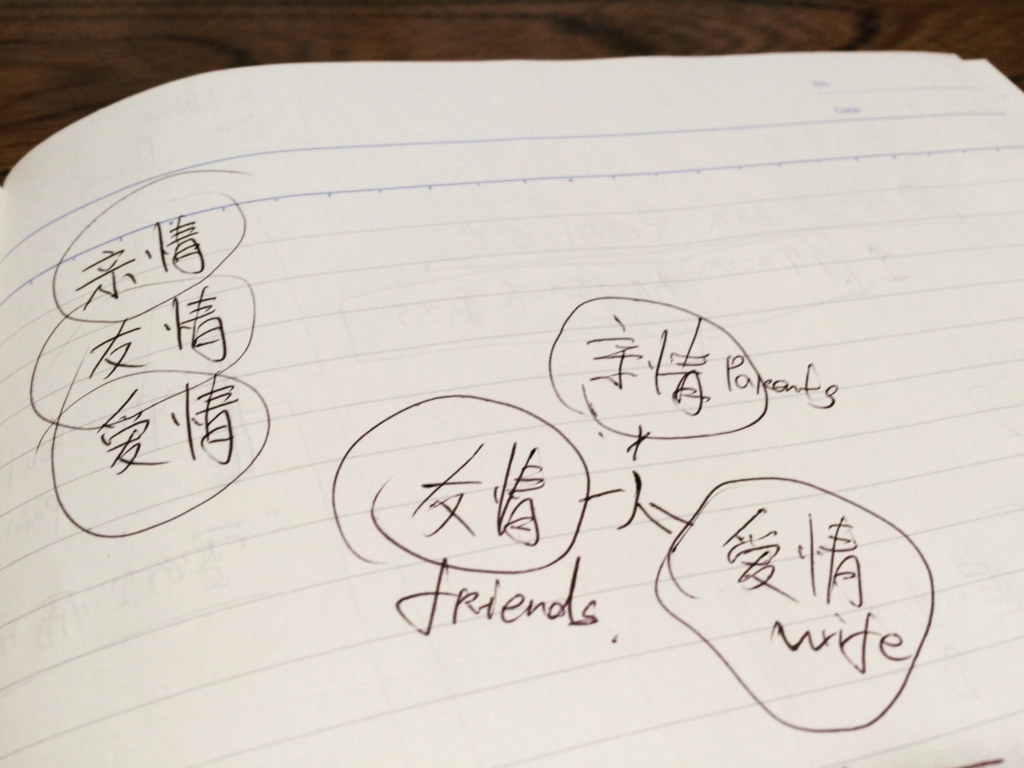 亲情
友情
爱情
亲情 Parents
友情 人
friends.
爱情
wife
No.
Date